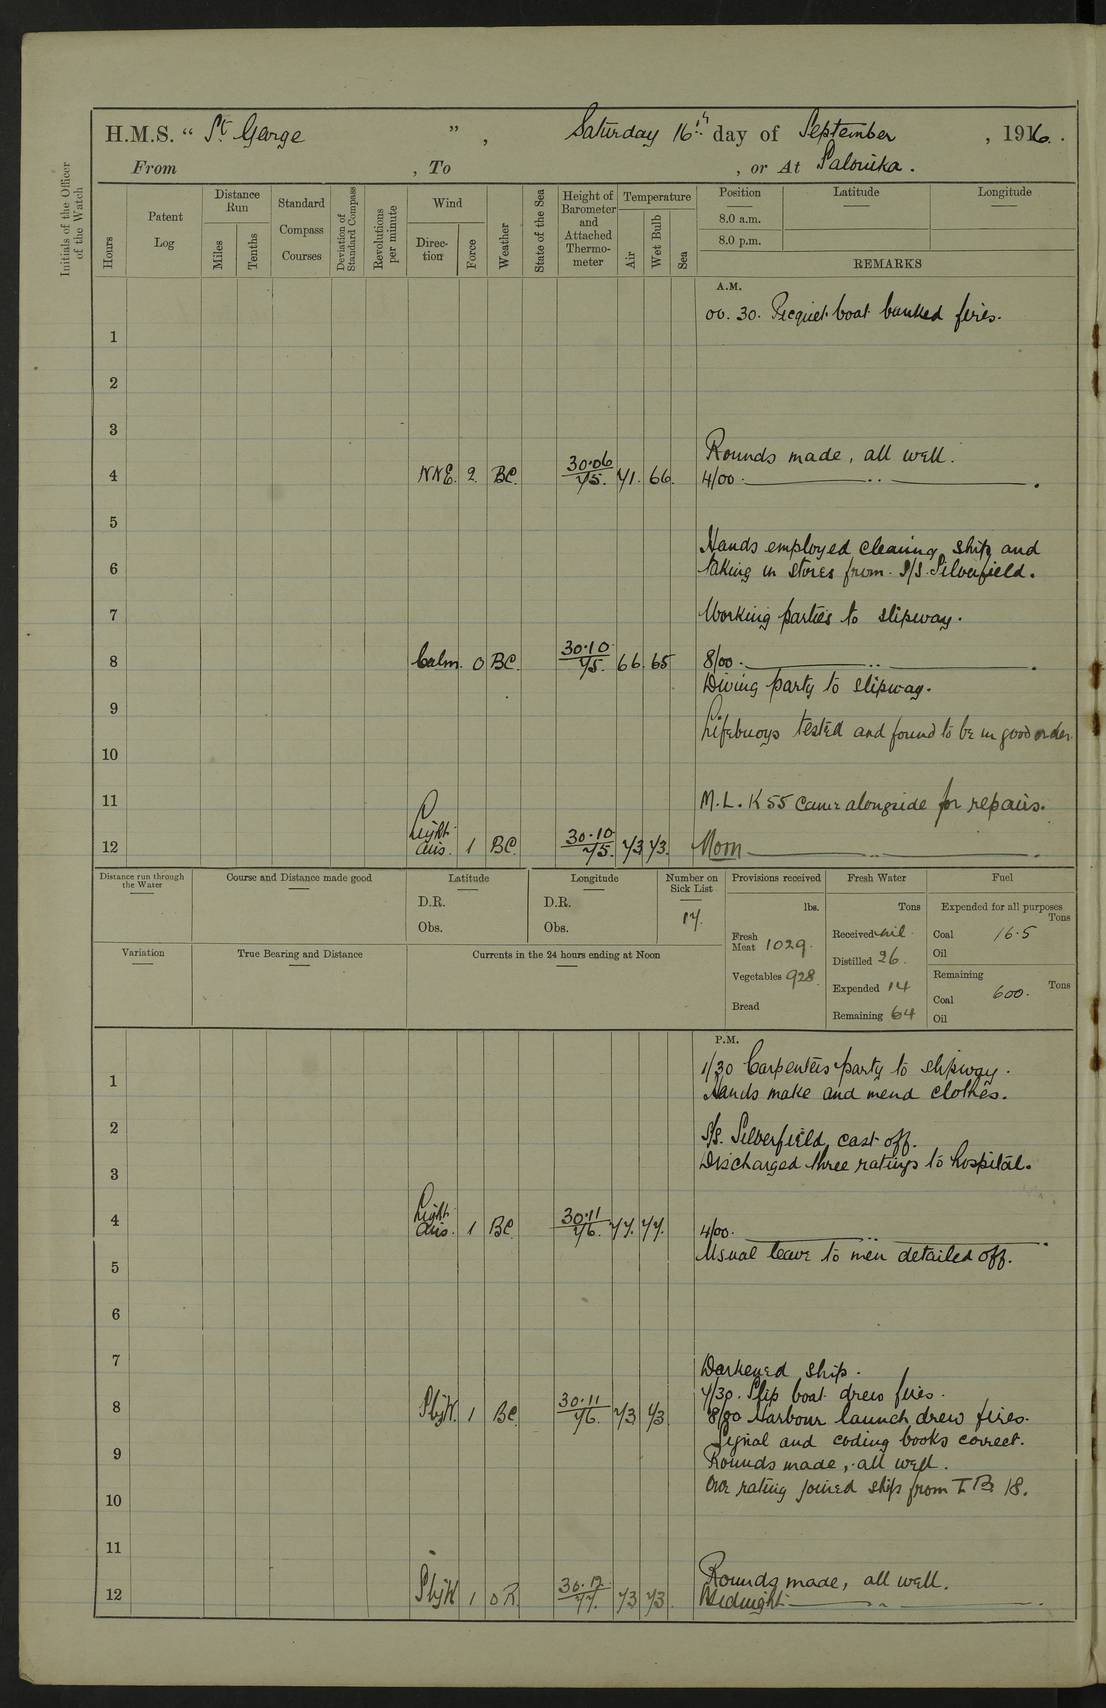 H.M.S. “ St George ” , Saturday 16th day of September , 1916.
From , To , or At Salonika.
Initials of the Officer of the Watch
Hours
Patent Log
Distance Run
Miles
Tenths
Standard Compass Courses
Deviation of Standard Compass
Revolutions per minute
Wind
Direction
Force
Weather
State of the Sea
Height of Barometer and Attached Thermometer
Temperature
Air
Wet Bulb
Sea
Position
Latitude
Longitude
8.0 a.m.
8.0 p.m.
REMARKS
A.M.
00.30. Picquet boat banked fires.
1
2
3
Rounds made, all well.
4 NNE. 2. BC. 30.06/75. 71. 66. 4/00.
5
Hands employed cleaning ship and
6 taking in stores from S/S. Silverfield.
7 Working parties to slipway.
8 Calm. 0 BC. 30.10/75. 66. 65 8/00.
Diving party to slipway.
9
Lifebuoys tested and found to be in good order
10
11 M.L. K 55 came alongside for repairs.
12 Light airs. 1 BC. 30.10/75. 73 73. Noon
Distance run through the Water
Course and Distance made good
Latitude
D.R.
Obs.
Longitude
D.R.
Obs.
Number on Sick List
17.
Provisions received
lbs.
Fresh Meat 1029.
Vegetables 928.
Bread
Fresh Water
Tons
Received nil.
Distilled 26.
Expended 14
Remaining 64
Fuel
Expended for all purposes
Tons
Coal 16.5
Oil
Remaining
Tons
Coal 600.
Oil
Variation
True Bearing and Distance
Currents in the 24 hours ending at Noon
P.M.
1/30 Carpenters party to slipway.
1 Hands make and mend clothes.
2 S/S. Silverfield cast off.
Discharged three ratings to hospital.
3
4 Light airs. 1 BC. 30.11/76. 77. 77. 4/00.
Usual leave to men detailed off.
5
6
7 Darkened ship.
7/30. Slip boat drew fires.
8 1 BC. 30.11/76. 73 73. 8/00 Harbour launch drew fires.
Signal and coding books correct.
9 Rounds made, all well.
One rating joined ship from T.B. 18.
10
11
Rounds made, all well.
12 1 OR. 30.12/77. 73 73. Midnight